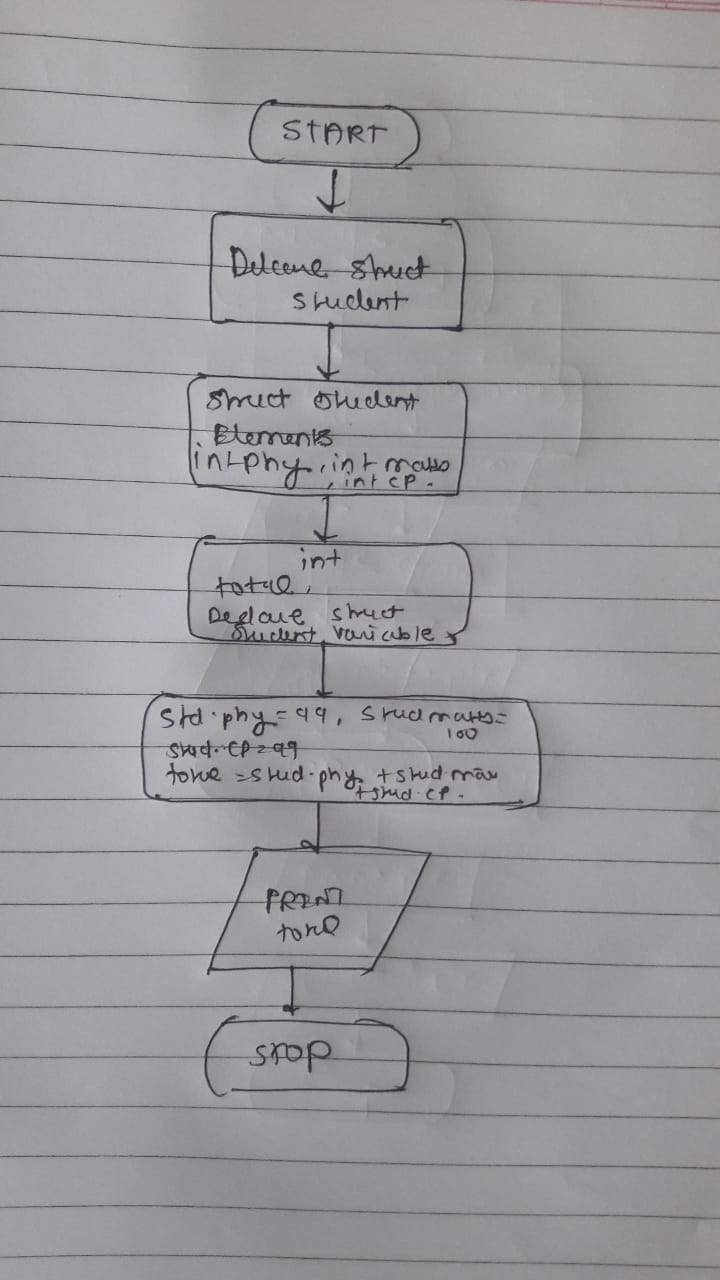 START
Delcare struct
student
struct student
Elements
int phy, int maths
, int CP.
int
total,
Declare struct
student variable
Std.phy = 99, stud maths=
100
stud.CP = 99
total = stud.phy + stud.mat
+ stud.CP.
PRINT
total
STOP